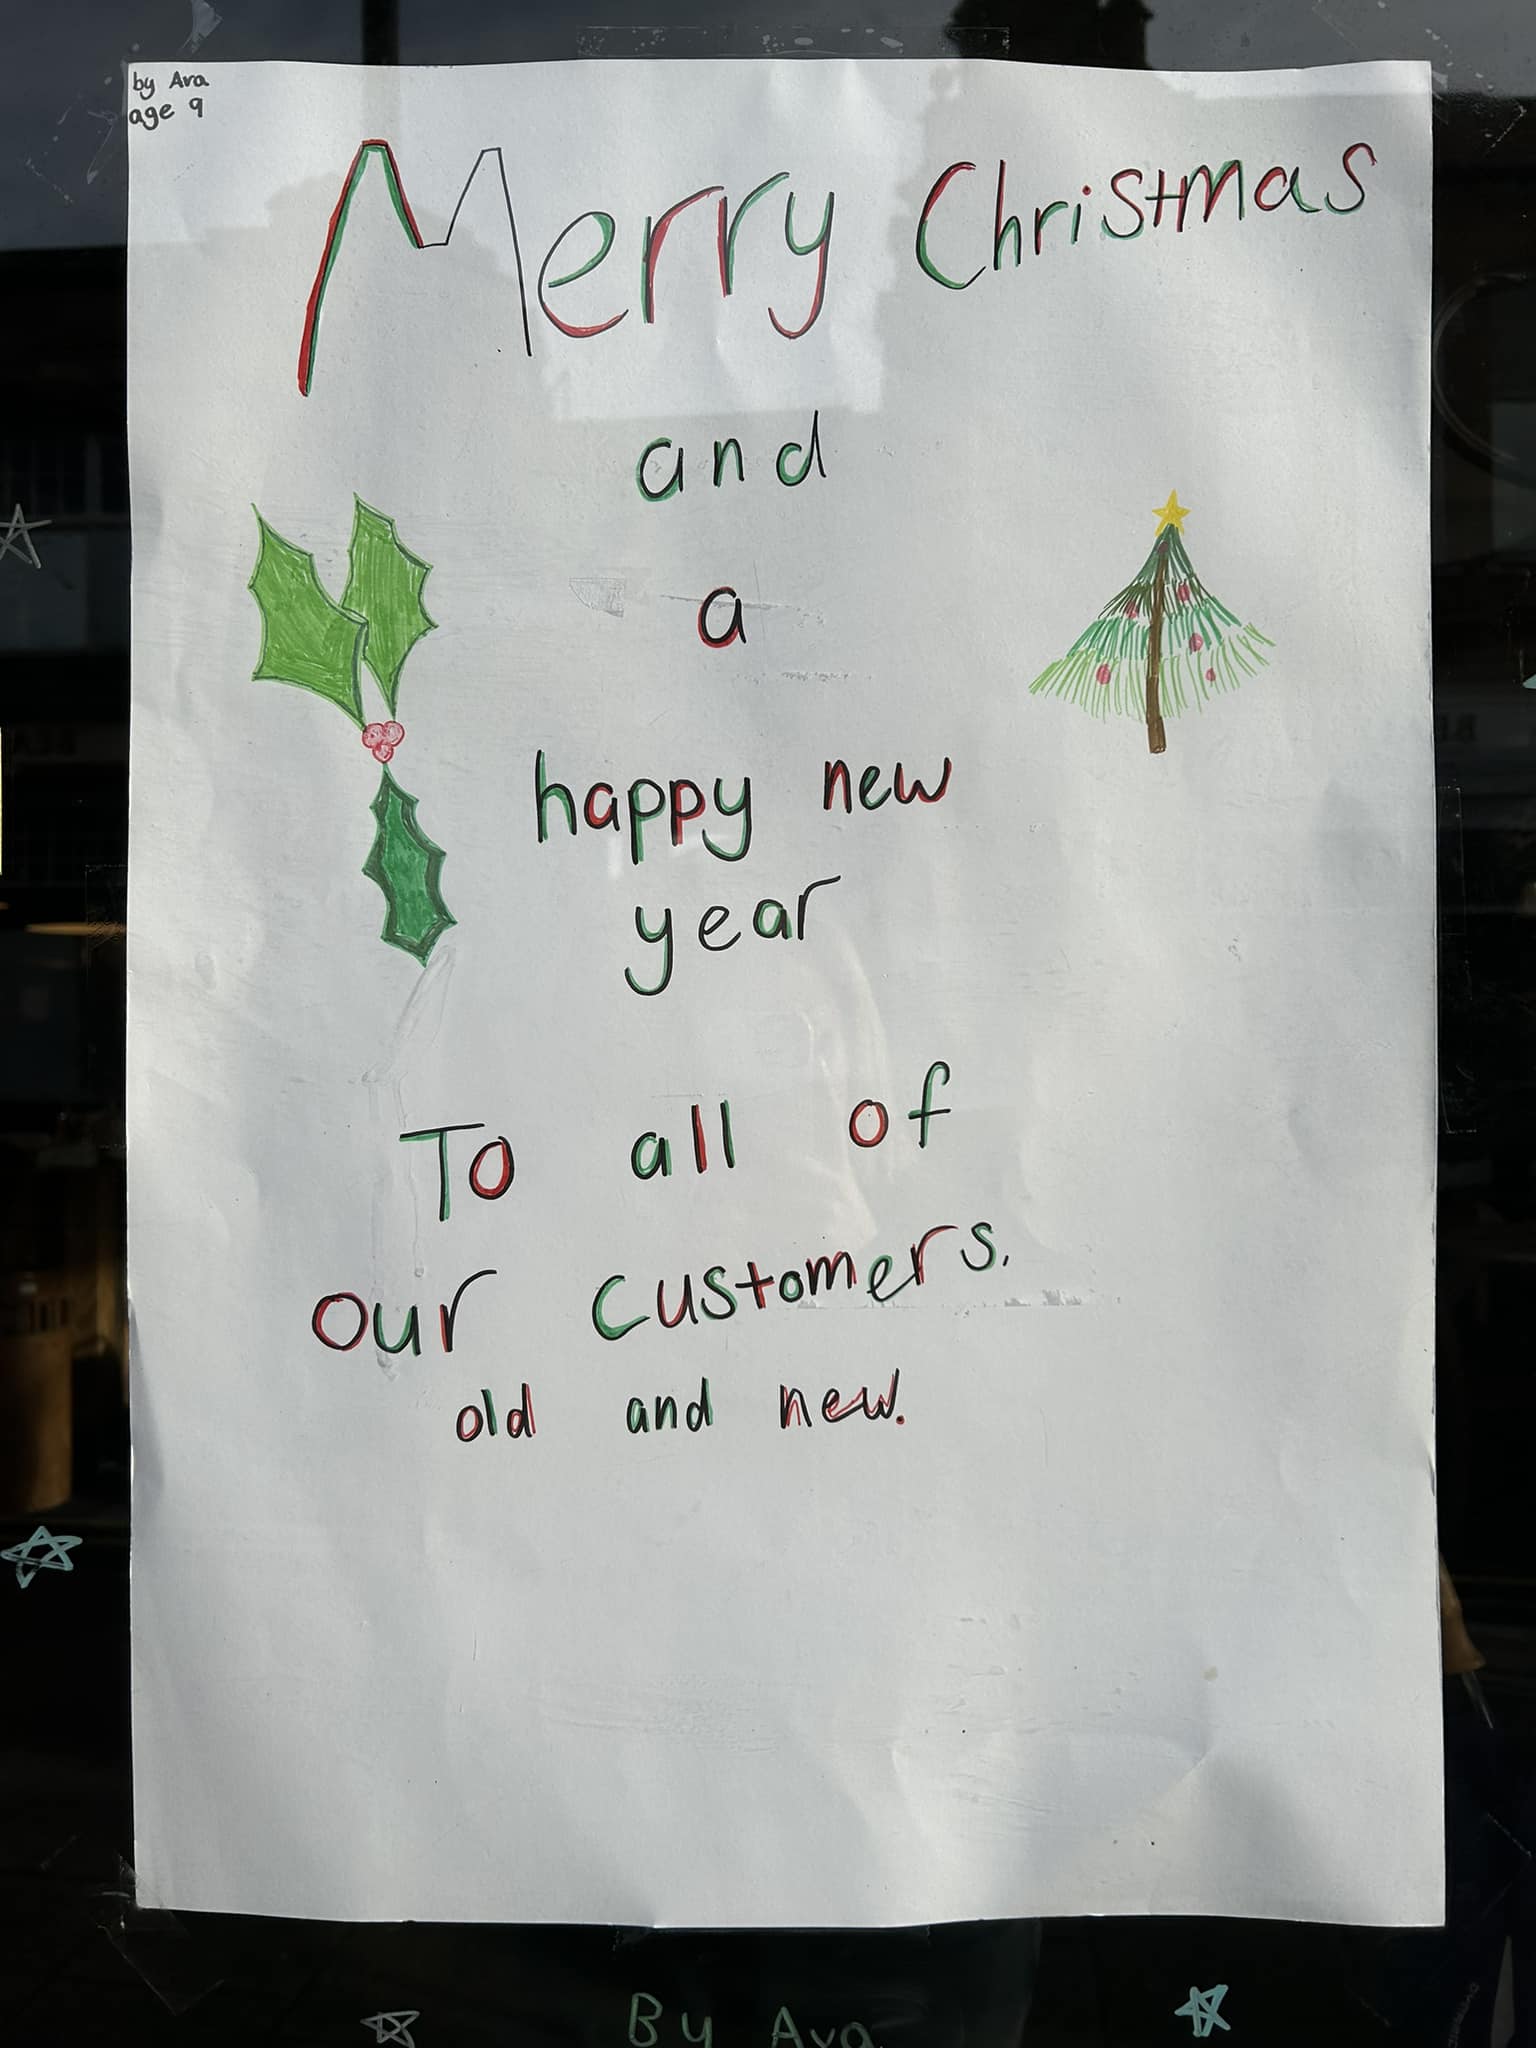 by Ava
age 9
Merry Christmas
and
a
happy new
year
To all of
our customers.
old and new.
By Ava